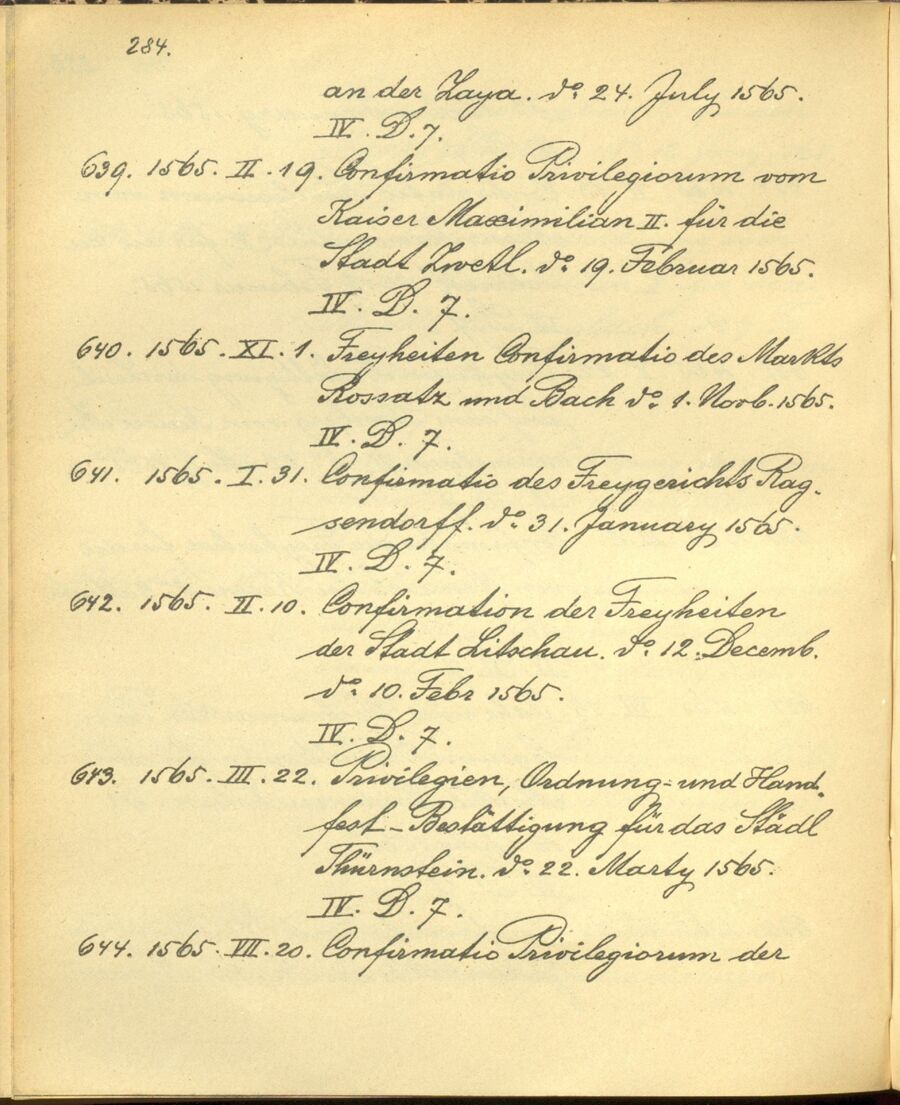 284.
an der Zaya. do. 24. July 1565.
IV. D. 7.
639. 1565. II. 19. Confirmatio Privilegiorum vom
Kaiser Maximilian II. für die
Stadt Zwetl. do. 19. Februar 1565.
IV. D. 7.
640. 1565. XI. 1. Freyheiten Confirmatio des Markts
Rossatz und Bach do. 1. Novb. 1565.
IV. D. 7.
641. 1565. I. 31. Confirmatio des Freygerichts Rag-
sendorff. do. 31. January 1565.
IV. D. 7.
642. 1565. II. 10. Confirmation der Freyheiten
der Stadt Litschau. do. 12. Decemb.
do. 10. Febr 1565.
IV. D. 7.
643. 1565. III. 22. Privilegien, Ordnung- und Hand-
fest-Bestättigung für das Städl
Thürnstein. do. 22. Marty 1565.
IV. D. 7.
644. 1565. VIII. 20. Confirmatio Privilegiorum der